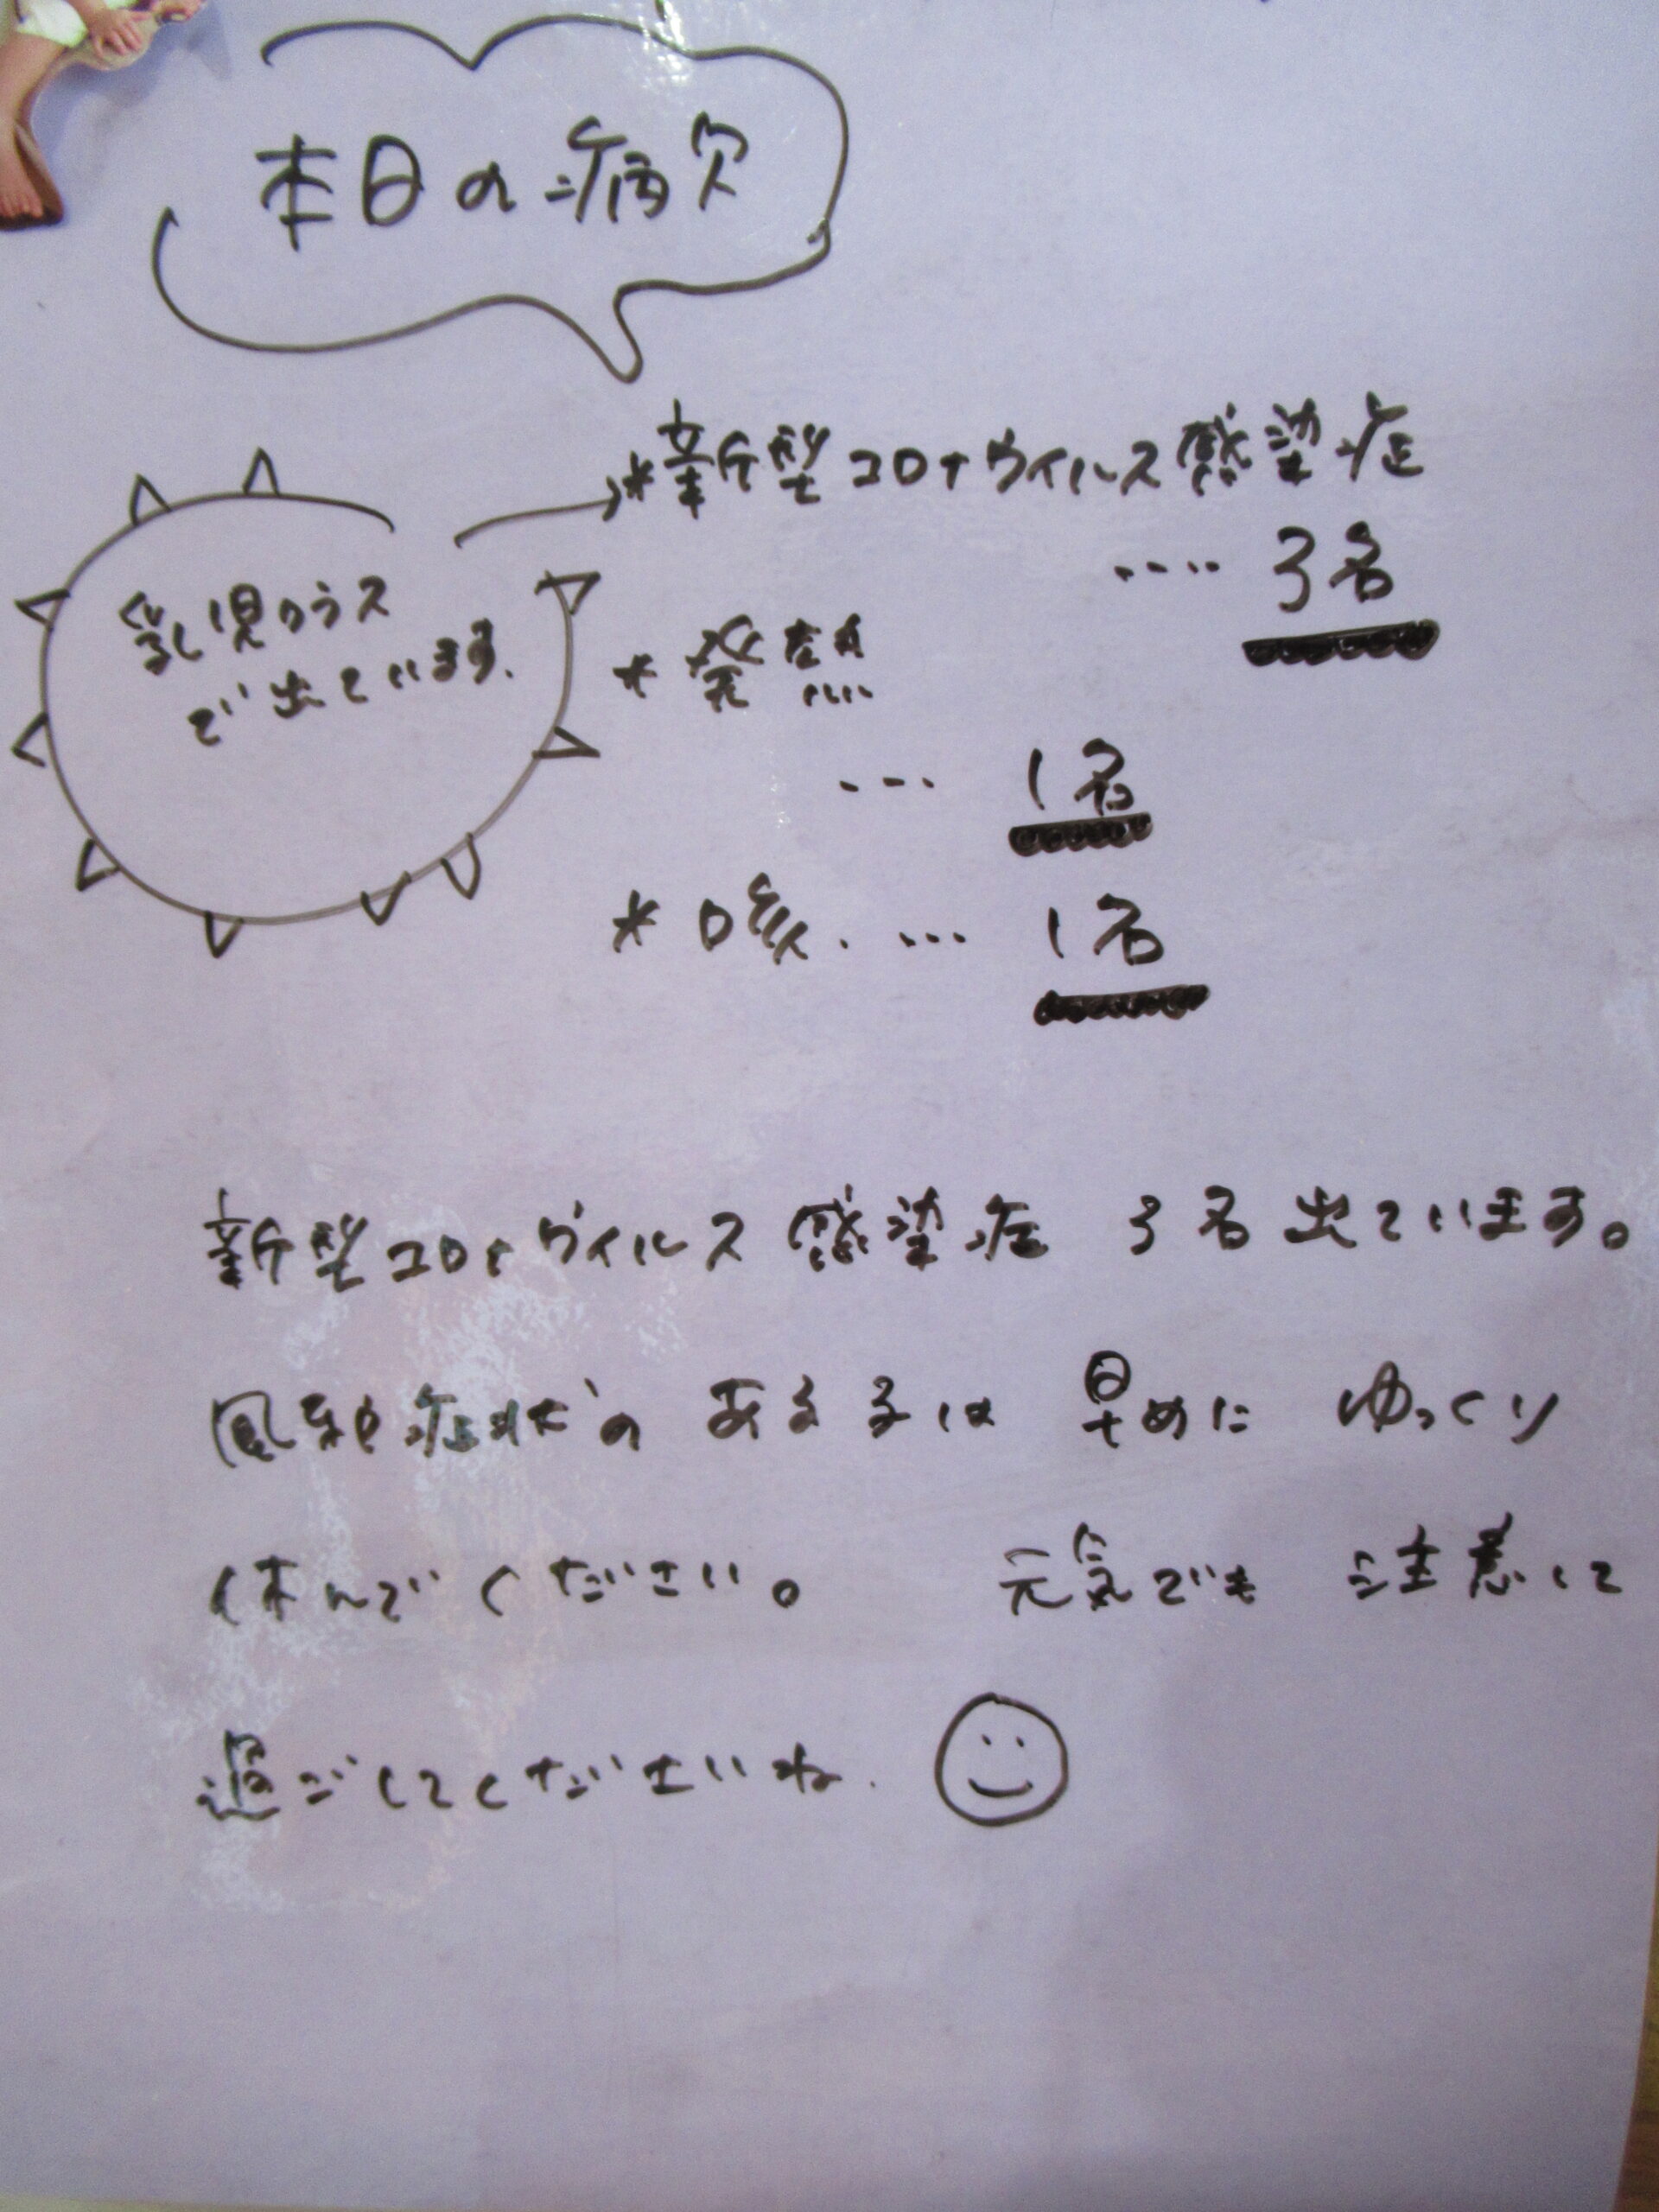 本日の病欠
*新型コロナウイルス感染症
････3名
乳児クラス
で出ています.
*発熱
･･･1名
*咳.･･･1名
新型コロナウイルス感染症 3名出ています。
風邪症状のある子は 早めに ゆっくり
休んでください。 元気でも 注意して
過ごしてくださいね.